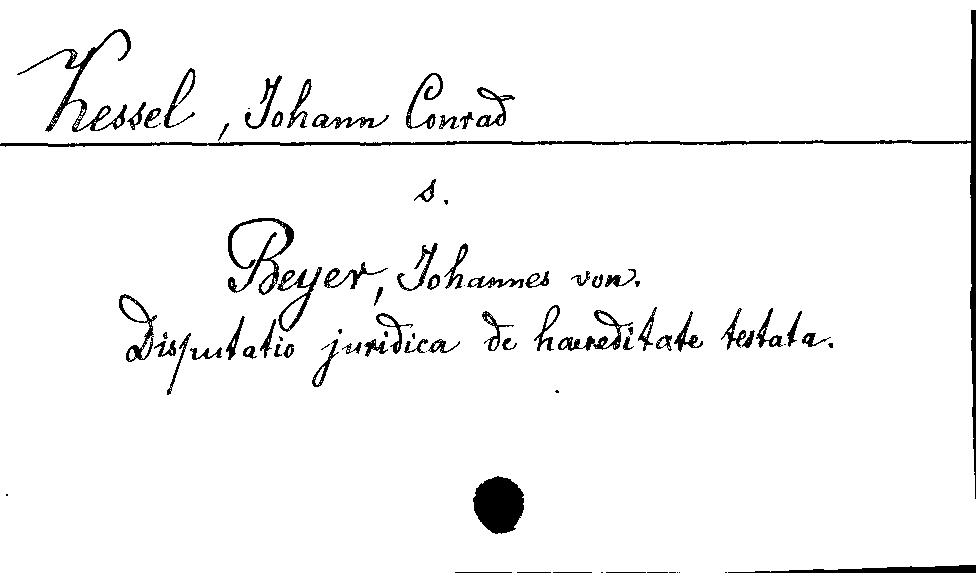 Kessel, Johann Conrad
s.
Beyer, Johannes von.
Disputatio juridica de haereditate testata.